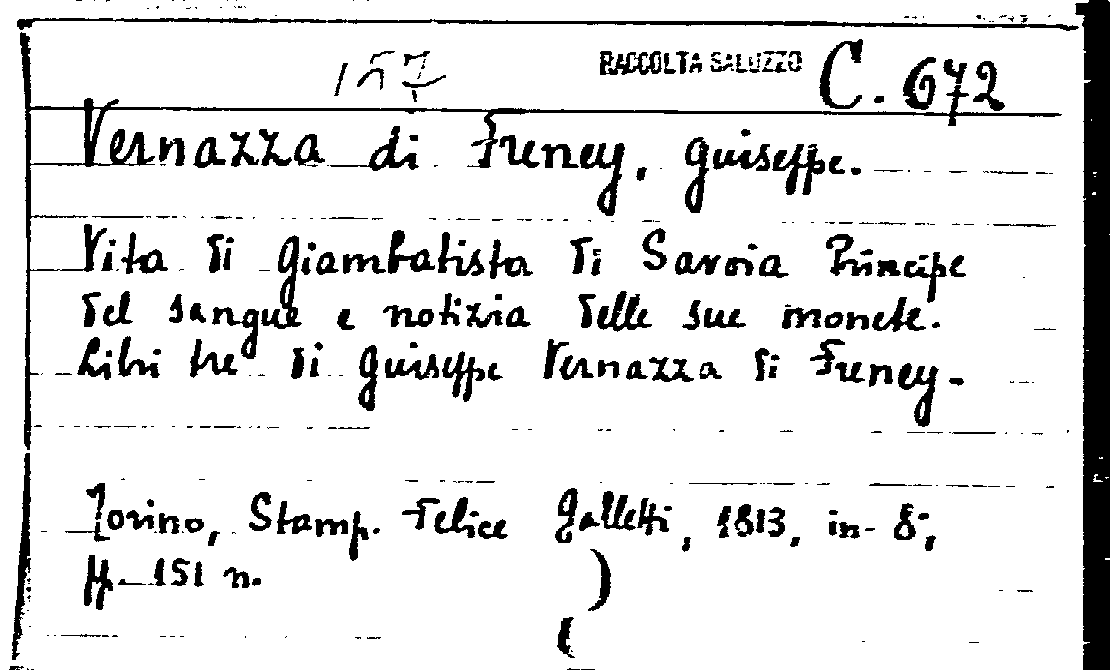 157 RACCOLTA SALUZZO C. 672
Vernazza di Freney, Giuseppe.
Vita di Giambatista di Savoia Principe
del sangue e notizia delle sue monete.
Libri tre di Giuseppe Vernazza di Freney.
Torino, Stamp. Felice Galletti, 1813, in-8°,
pp. 151 n.